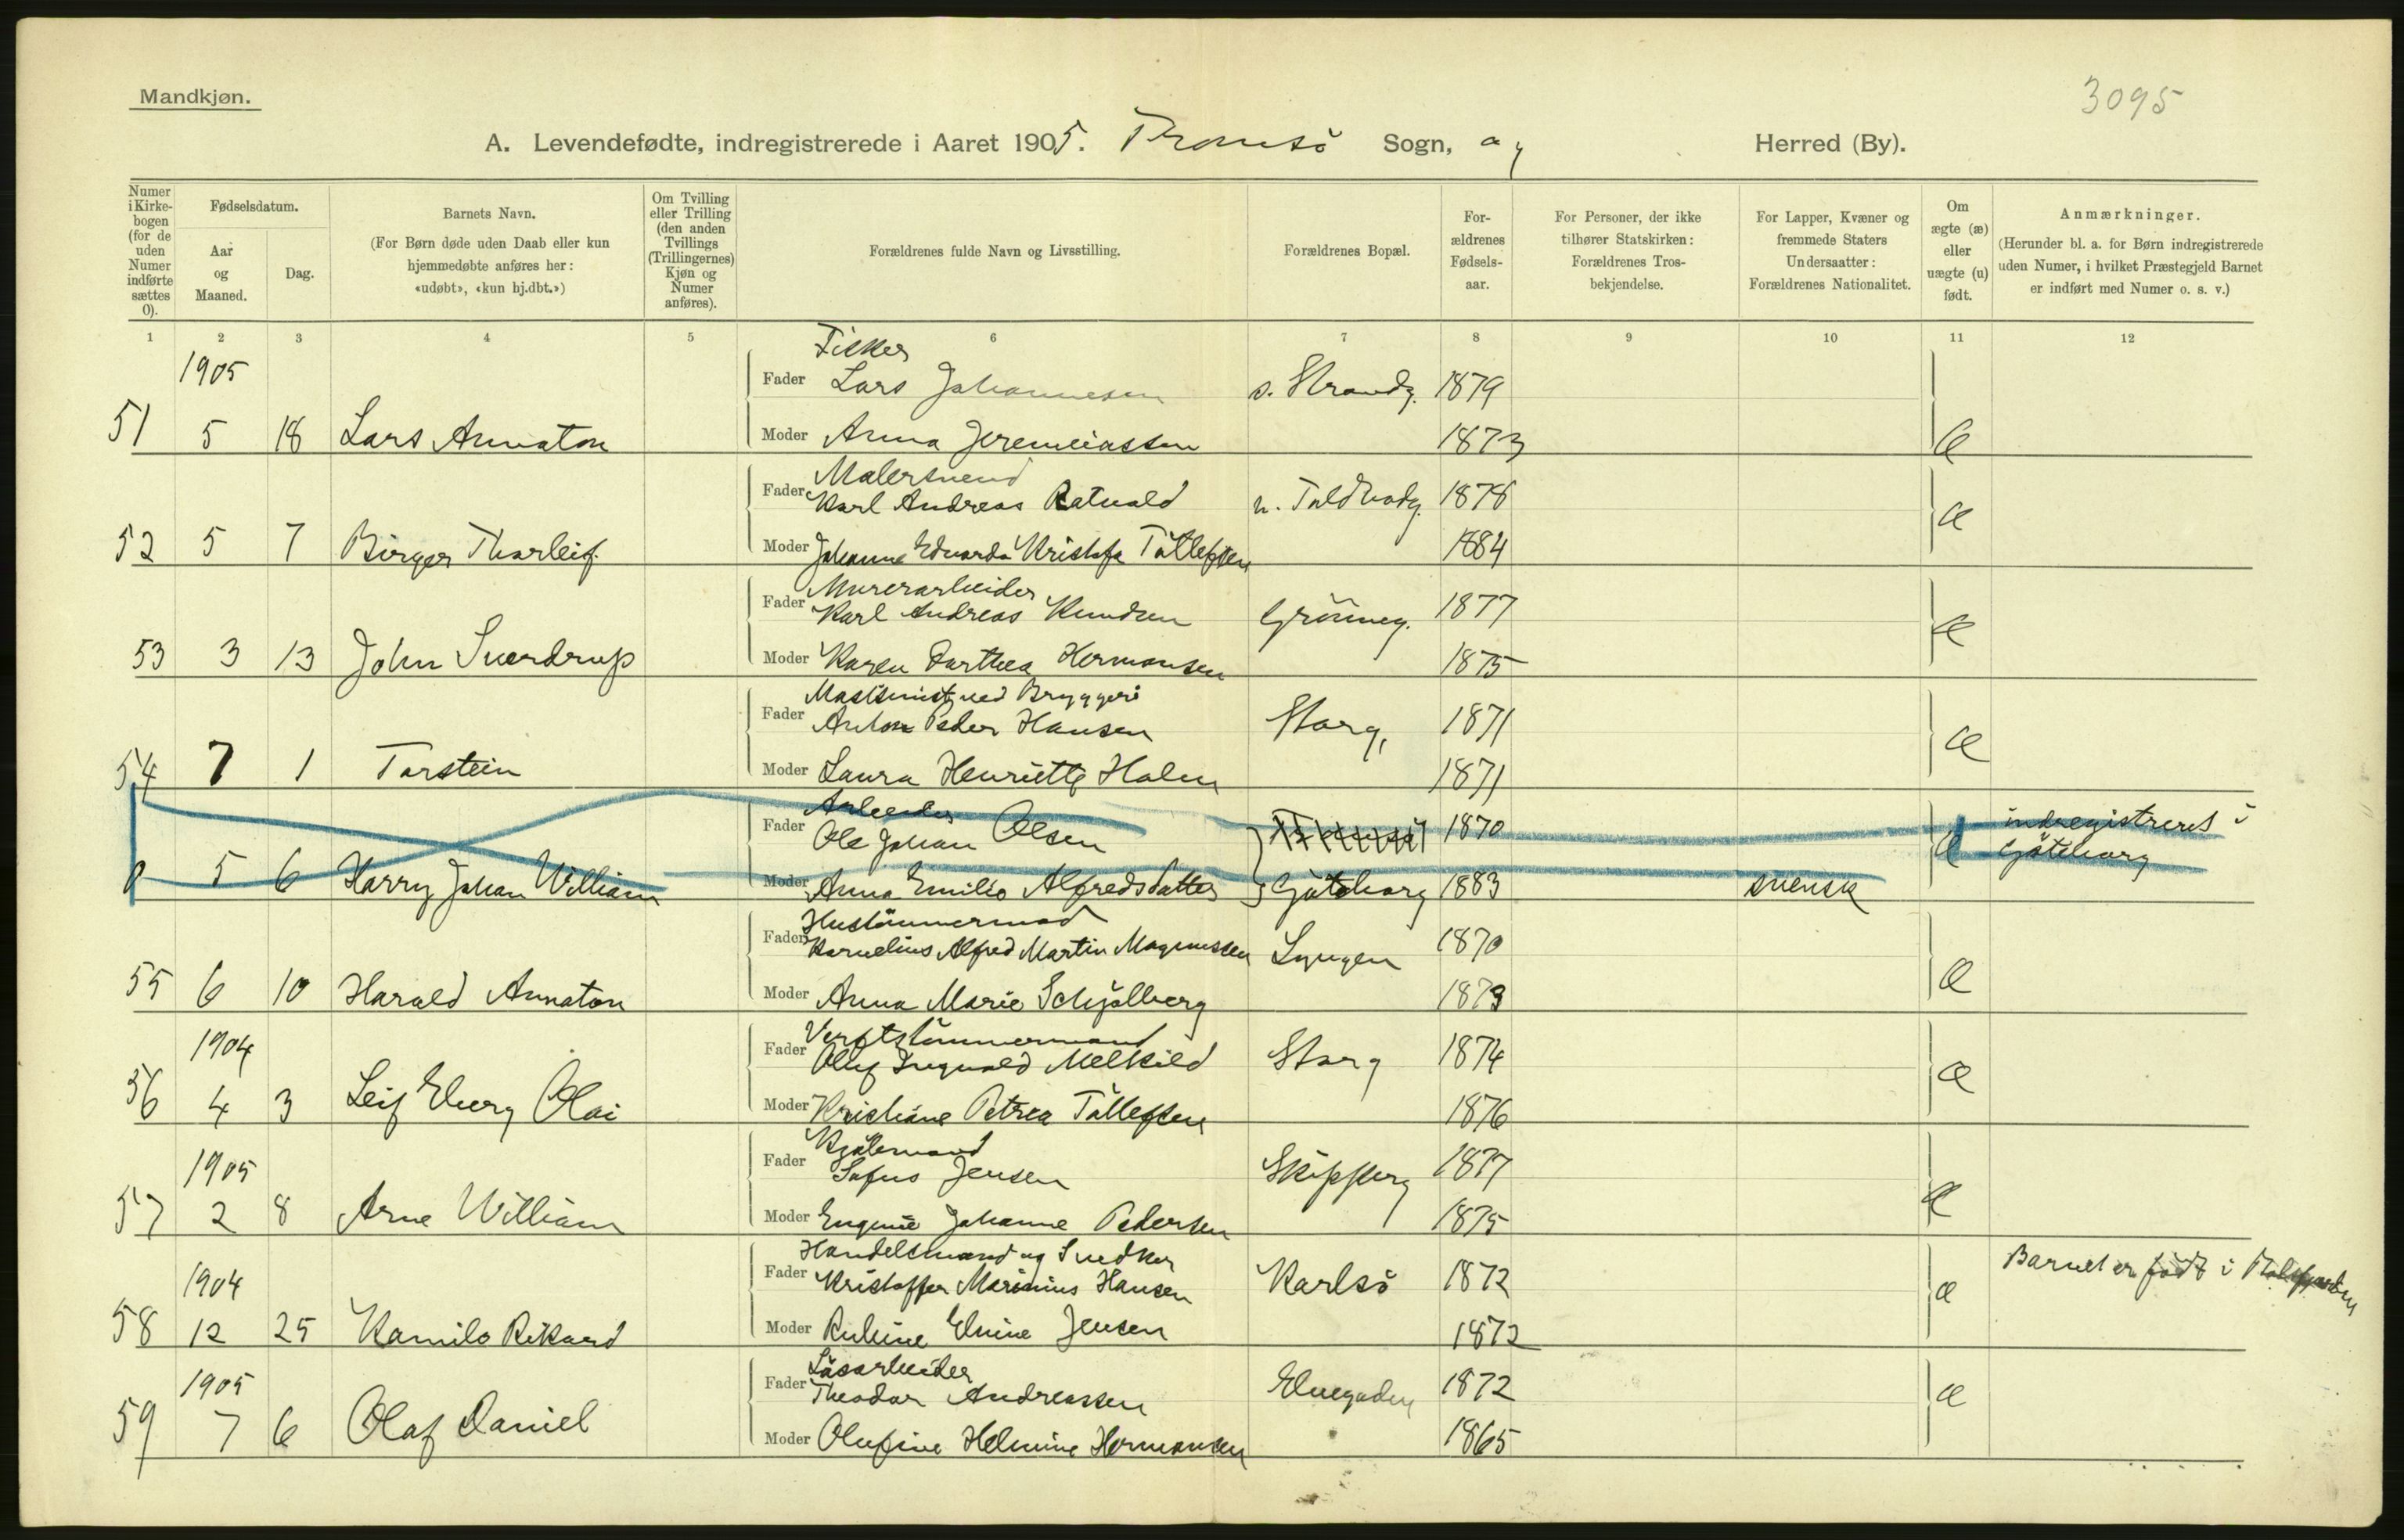 Mandkjøn.
3095
A. Levendefødte, indregistrerede i Aaret 1905. Tromsö Sogn, og Herred (By).
Numer i Kirke-bogen (for de uden Numer indførte sættes 0).
Fødselsdatum.
Aar og Maaned.
Dag.
Barnets Navn.
(For Børn døde uden Daab eller kun hjemmedøbte anføres her: «udøbt», «kun hj.dbt.»)
Om Tvilling eller Trilling (den anden Tvillings (Trillingernes) Kjøn og Numer anføres).
Forældrenes fulde Navn og Livsstilling.
Forældrenes Bopæl.
For-ældrenes Fødsels-aar.
For Personer, der ikke tilhører Statskirken: Forældrenes Tros-bekjendelse.
For Lapper, Kvæner og fremmede Staters Undersaatter: Forældrenes Nationalitet.
Om ægte (æ) eller uægte (u) født.
Anmærkninger.
(Herunder bl. a. for Børn indregistrerede uden Numer, i hvilket Præstegjeld Barnet er indført med Numer o. s. v.)
1 2 3 4 5 6 7 8 9 10 11 12
1905 Fisker
Fader Lars Johannesen s. Strandg. 1879
51 5 18 Lars Annaton Moder Anna Jeremiassen 1873 æ
Malersvend
Fader Karl Andreas Ratvald n. Toldbodg. 1878 æ
52 5 7 Birger Thorleif Moder Johanne Edvarda Kristofa Tollefsen 1884
Murerarbeider
Fader Karl Andreas Knudsen Grönneg. 1877 æ
53 3 13 John Sverdrup Moder Karen Darthea Hermansen 1875
Maskinist ved Bryggeri
Fader Anton Peder Hansen Storg. 1871 æ
54 7 1 Torstein Moder Laura Henriette Holm 1871
Arbeider
Fader Ole Johan Olsen 1870 æ indregistreret i Göteborg
0 5 6 Harry Johan William Moder Anna Emilie Alfredsdatter Göteborg 1883 svensk
Hustömmermand
Fader Kornelius Alfred Martin Magnussen Lyngen 1870 æ
55 6 10 Harald Annaton Moder Anna Marie Schjölberg 1873
1904 Verftstömmermand
Fader Oluf Ingvald Melkild Storg 1874 æ
56 4 3 Leif Elberg Olai Moder Kristiane Petrea Tollefsen 1876
1905
Fader Sofus Jensen Skipperg 1877 æ
57 2 8 Arne William Moder Eugenie Johanne Pedersen 1875
1904 Handelsmand og Snedker
Fader Kristoffer Marinius Hansen Karlsö 1872 æ Barnet er födt i
58 12 25 Kamilo Rikard Moder Elvine Jensen 1872
1905 Lösarbeider
Fader Theodor Andreassen Elvegaden 1872 æ
59 7 6 Olaf Daniel Moder Olufine Helmine Hermansen 1865